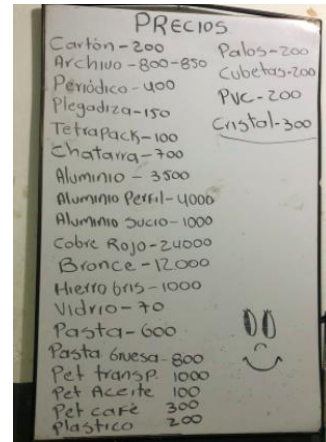 PRECIOS
Cartón-200
Archivo-800-850
Periódico-400
Plegadiza-150
TetraPack-100
Chatarra-700
Aluminio-3500
Aluminio Perfil-4000
Aluminio Sucio-1000
Cobre Rojo-24000
Bronce-12000
Hierro Gris-1000
Vidrio-70
Pasta-600
Pasta Gruesa-800
Pet transp. 1000
Pet Aceite 100
Pet café 300
Plastico 200
Palos-200
Cubetas-200
PVC-200
Cristal-300